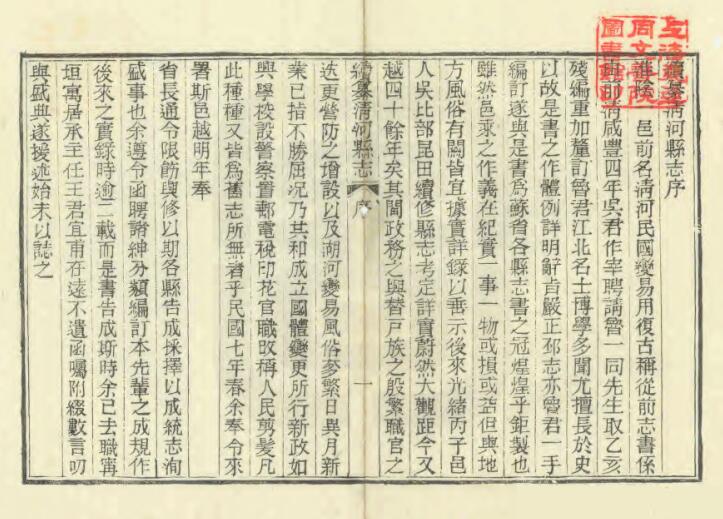 續纂清河縣志序
淮陰 邑前名清河民國變易用復古稱從前志書係
由前清咸豐四年吳君作宰聘請魯一同先生取乙亥
殘編重加釐訂魯君江北名士博學多聞尤擅長於史
以故是書之作體例詳明辭旨嚴正邳志亦魯君一手
編訂遂與是書爲蘇省各縣志書之冠煌煌乎鉅製也
雖然邑乘之作義在紀實一事一物或損或益但與地
方風俗有關皆宜據實詳錄以垂示後來光緒丙子邑
人吳比部昆田續修縣志考定詳實蔚然大觀距今又
越四十餘年矣其間政務之興替戶族之殷繁職官之
續纂清河縣志 序 一
迭更營防之增設以及湖河變易風俗奓繁日異月新
業已指不勝屈況乃共和成立國體變更所行新政如
興學校設警察置郵電稅印花官職改稱人民剪髮凡
此種種又皆爲舊志所無者乎民國七年春余奉令來
署斯邑越明年奉
省長通令限飭與修以期各縣告成採擇以成統志洵
盛事也余遵令函聘諸紳分類編訂本先輩之成規作
後來之實錄時逾二載而是書告成斯時余已去職寗
垣寓居承主任王君宜甫在遠不遺函囑附綴數言叨
與盛典遂援述始末以誌之
圖書